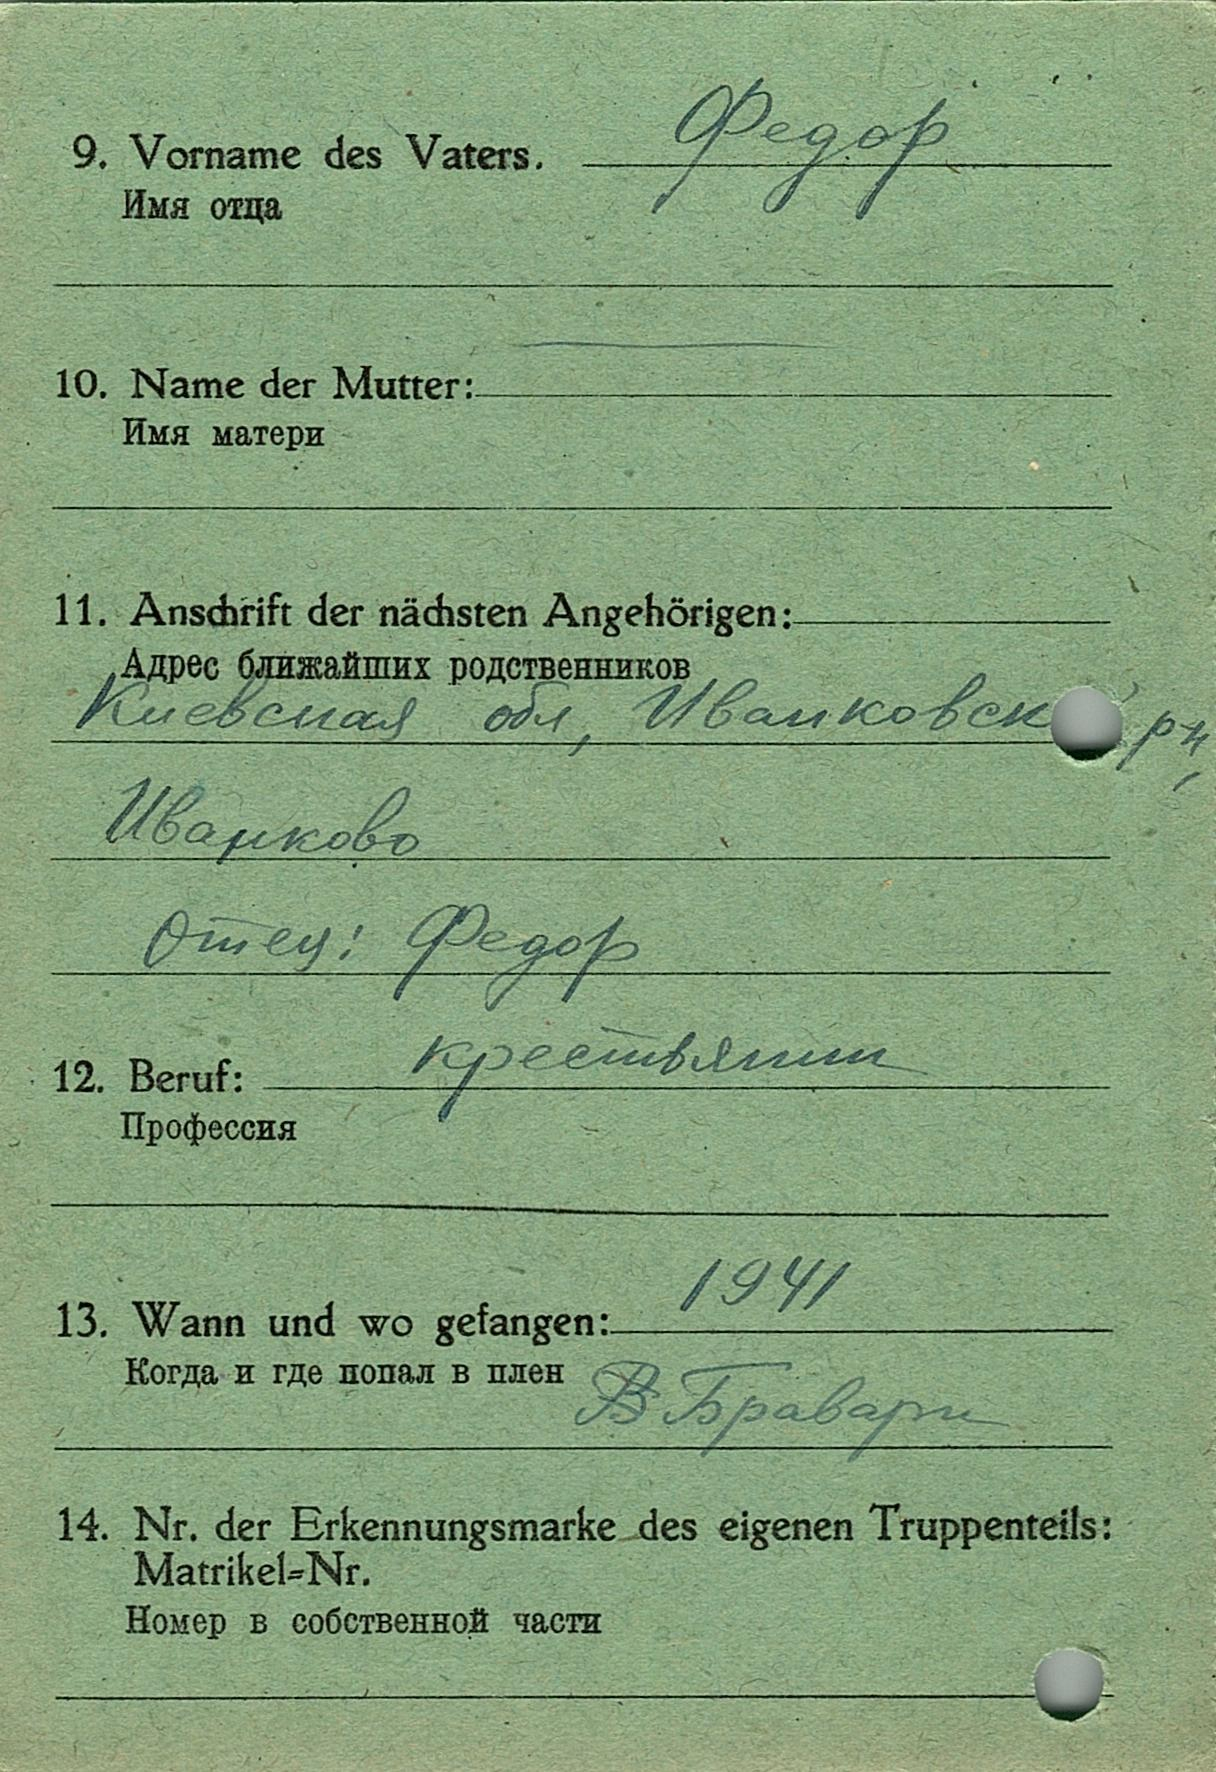 9. Vorname des Vaters. Федор
Имя отца
10. Name der Mutter:
Имя матери
11. Anschrift der nächsten Angehörigen:
Адрес ближайших родственников
Киевская обл, Иванковск р-н,
Иванково
Отец: Федор
12. Beruf: крестьянин
Профессия
13. Wann und wo gefangen: 1941
Когда и где попал в плен
В Бравари
14. Nr. der Erkennungsmarke des eigenen Truppenteils:
Matrikel-Nr.
Номер в собственной части